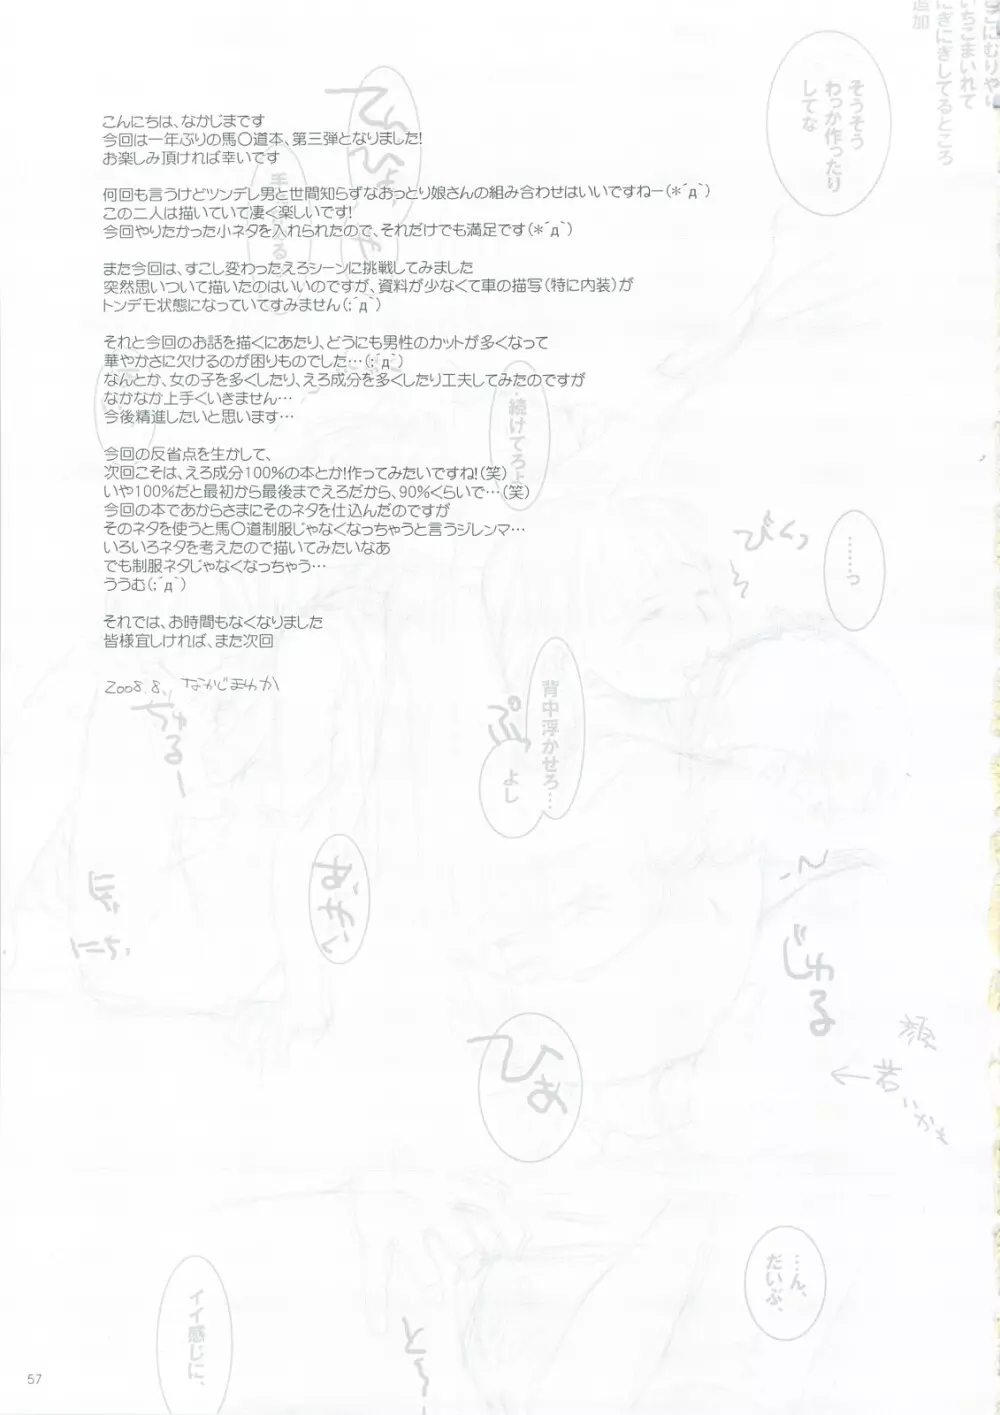 こんにちは、なかじまです
今回は一年ぶりの馬〇道本、第三弾となりました!
お楽しみ頂ければ幸いです
何回も言うけどツンデレ男と世間知らずなおっとり娘さんの組み合わせはいいですねー(*´д`)
この二人は描いていて凄く楽しいです!
今回やりたかった小ネタを入れられたので、それだけでも満足です(*´д`)
また今回は、すこし変わったえろシーンに挑戦してみました
突然思いついて描いたのはいいのですが、資料が少なくて車の描写(特に内装)が
トンデモ状態になっていてすみません(;´д`)
それと今回のお話を描くにあたり、どうにも男性のカットが多くなって
華やかさに欠けるのが困りものでした…(;´д`)
なんとか、女の子を多くしたり、えろ成分を多くしたり工夫してみたのですが
なかなか上手くいきません…
今後精進したいと思います…
今回の反省点を生かして、
次回こそは、えろ成分100%の本とか!作ってみたいですね!(笑)
いや100%だと最初から最後までえろだから、90%くらいで…(笑)
今回の本であからさまにそのネタを仕込んだのですが
そのネタを使うと馬〇道制服じゃなくなっちゃうと言うジレンマ…
いろいろネタを考えたので描いてみたいなあ
でも制服ネタじゃなくなっちゃう…
ううむ(;´д`)
それでは、お時間もなくなりました
皆様宜しければ、また次回
2008.8. なかじまゆか
にぎにぎしてるところ
追加
そうそう
わっか作ったり
してな
…続けてろよ
びくっ
………っ
背中浮かせろ…
よし
ぷっ
ちゅるー
じゅる
ひぁ
…ん、
だいぶ、
イイ感じに、
57